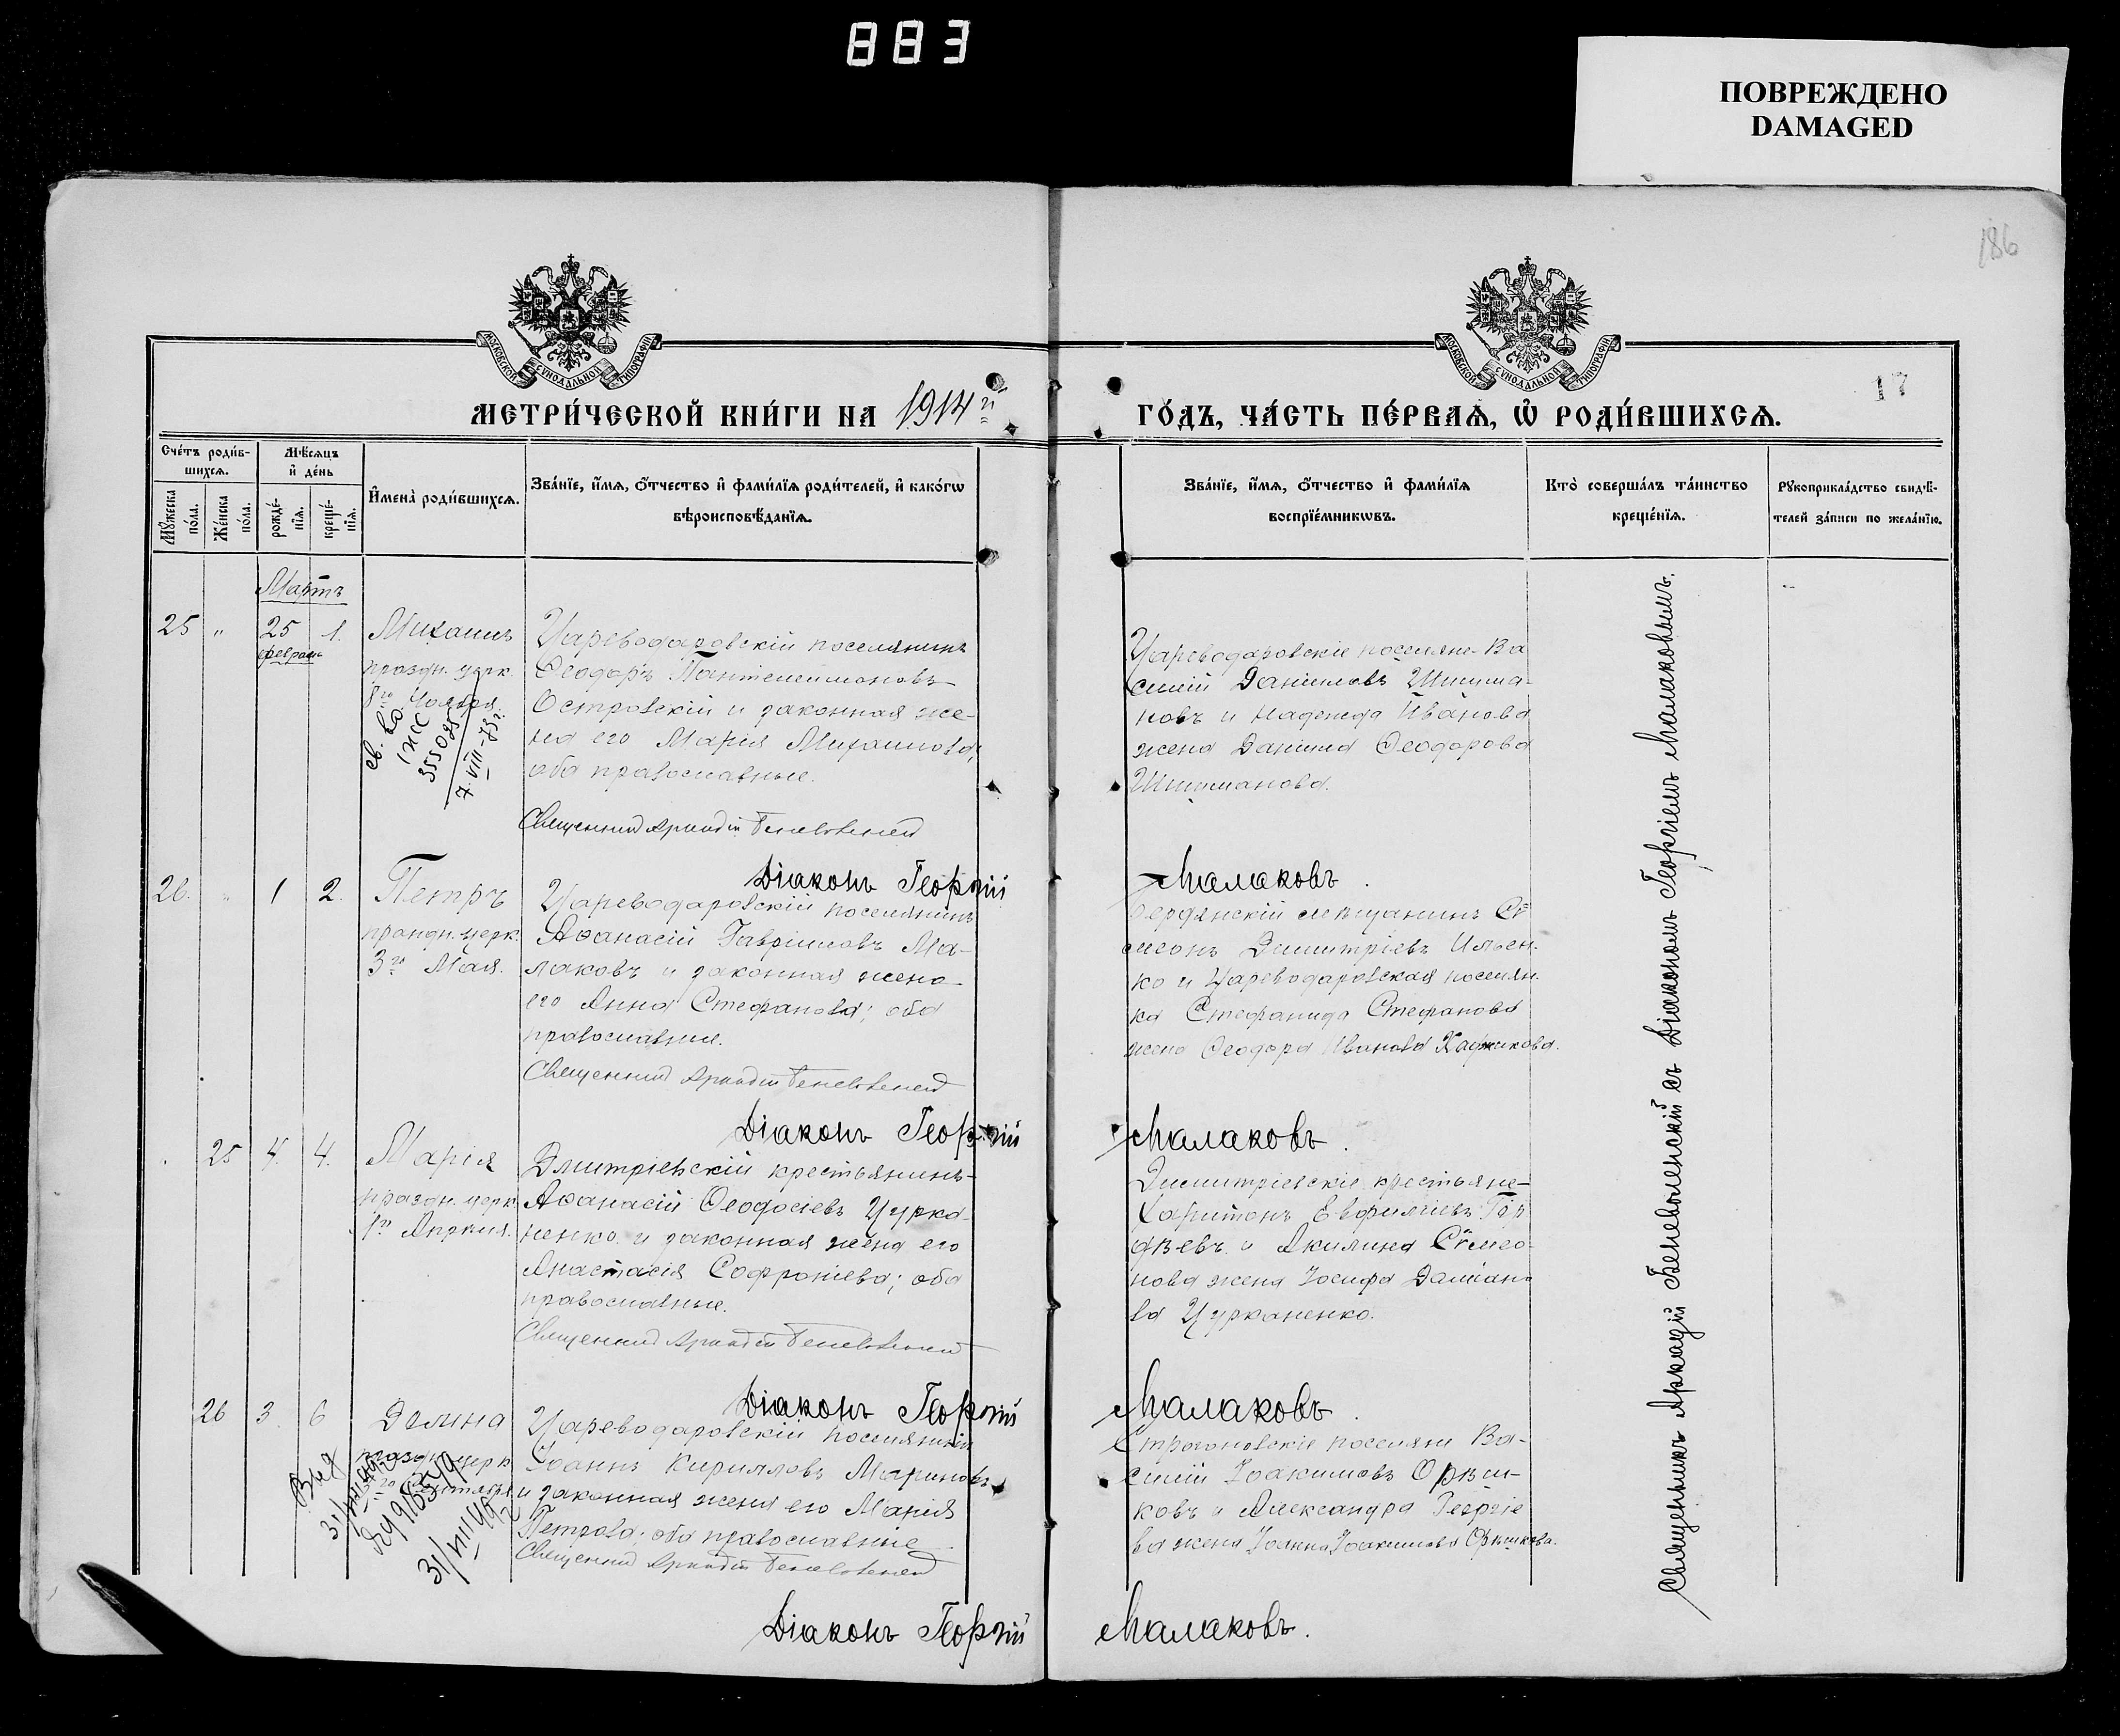 883
ПОВРЕЖДЕНО
DAMAGED
186
17
МОСКОВСКОЙ СѴНОДАЛЬНОЙ ТИПОГРАФІИ
МОСКОВСКОЙ СѴНОДАЛЬНОЙ ТИПОГРАФІИ
МЕТРИ́ЧЕСКОЙ КНИ́ГИ НА 1914й
ГО́ДЪ, ЧА́СТЬ ПЕ́РВАЯ, Ѿ РОДИ́ВШИХСЯ.
Сче́тъ роди́в-
шихся.
Мѣ́сяцъ
и҆ де́нь
Мꙋ́жеска
по́ла.
Же́нска
по́ла.
рожде́-
нїя.
креще́-
нїя.
И҆мена̀ роди́вшихся.
Зва́нїе, и҆́мя, ѻ҆́тчество и҆ фами́лїя роди́телей, и҆ како́гѡ
вѣроисповѣ́данїя.
Зва́нїе, и҆́мя, ѻ҆́тчество и҆ фами́лїя
воспрїе́мникѡвъ.
Кто̀ соверша́лъ та́инство
креще́нїя.
Рꙋкоприкла́дство свидѣ́-
телей за́писи по жела́нїю.
Мартъ
25 " 25 1. Михаилъ
февраля
праздн. церк.
8го Ноября.
св. во
355085
7-VIII-73г.
Цареводаровскій поселянинъ
Ѳеодоръ Пантелеимоновъ
Островскій и законная же-
на его Марія Михаилова;
оба православные.
Священникъ Аркадій Беневоленскій
Діаконъ Георгій
Малаковъ.
Цареводаровскіе поселяне Ва
силій Даниловъ Шишма-
новъ и Надежда Иванова
жена Даніила Ѳеодорова
Шишманова.
26. " 1 2. Петръ
праздн. церк.
3го Мая.
Цареводаровскій поселянинъ
Аѳанасій Гавріиловъ Ма-
лаковъ и законная жена
его Анна Стефанова; оба
православные.
Священникъ Аркадій Беневоленскій
Діаконъ Георгій
Малаковъ.
Бердянскій мѣщанинъ Сѵ
меонъ Димитріевъ Ильен-
ко и Цареводаровская поселян-
ка Стефанида Стефанова
жена Ѳеодора Иванова
25 4. 4. Марія
праздн. церк.
1го Апрѣля.
Дмитріевскій крестьянинъ
Аѳанасій Ѳеодосіевъ Цурка-
ненко и законная жена его
Анастасія Софроніева; оба
православные.
Священникъ Аркадій Беневоленскій
Діаконъ Георгій
Малаковъ.
Димитріевскіе крестьяне
Харитонъ Евфиміевъ Гор
дѣевъ и Акилина Сѵмео-
нова жена Іосифа Даміано
ва Цурканенко.
26 3. 6
праздн. церк
31/VIII 49
Цареводаровскій поселянинъ
Іоаннъ Кирилловъ Мариновъ
и законная жена его Марія
Петрова; оба православные
Священникъ Аркадій Беневоленскій
Діаконъ Георгій
Малаковъ.
Строгоновскіе поселяне Ва-
силій Іоакимовъ
ковъ и Александра Георгіе
ва жена Іоанна Іоакимова
Священникъ Аркадій Беневоленскій съ Діакономъ Георгіемъ Малаковымъ.